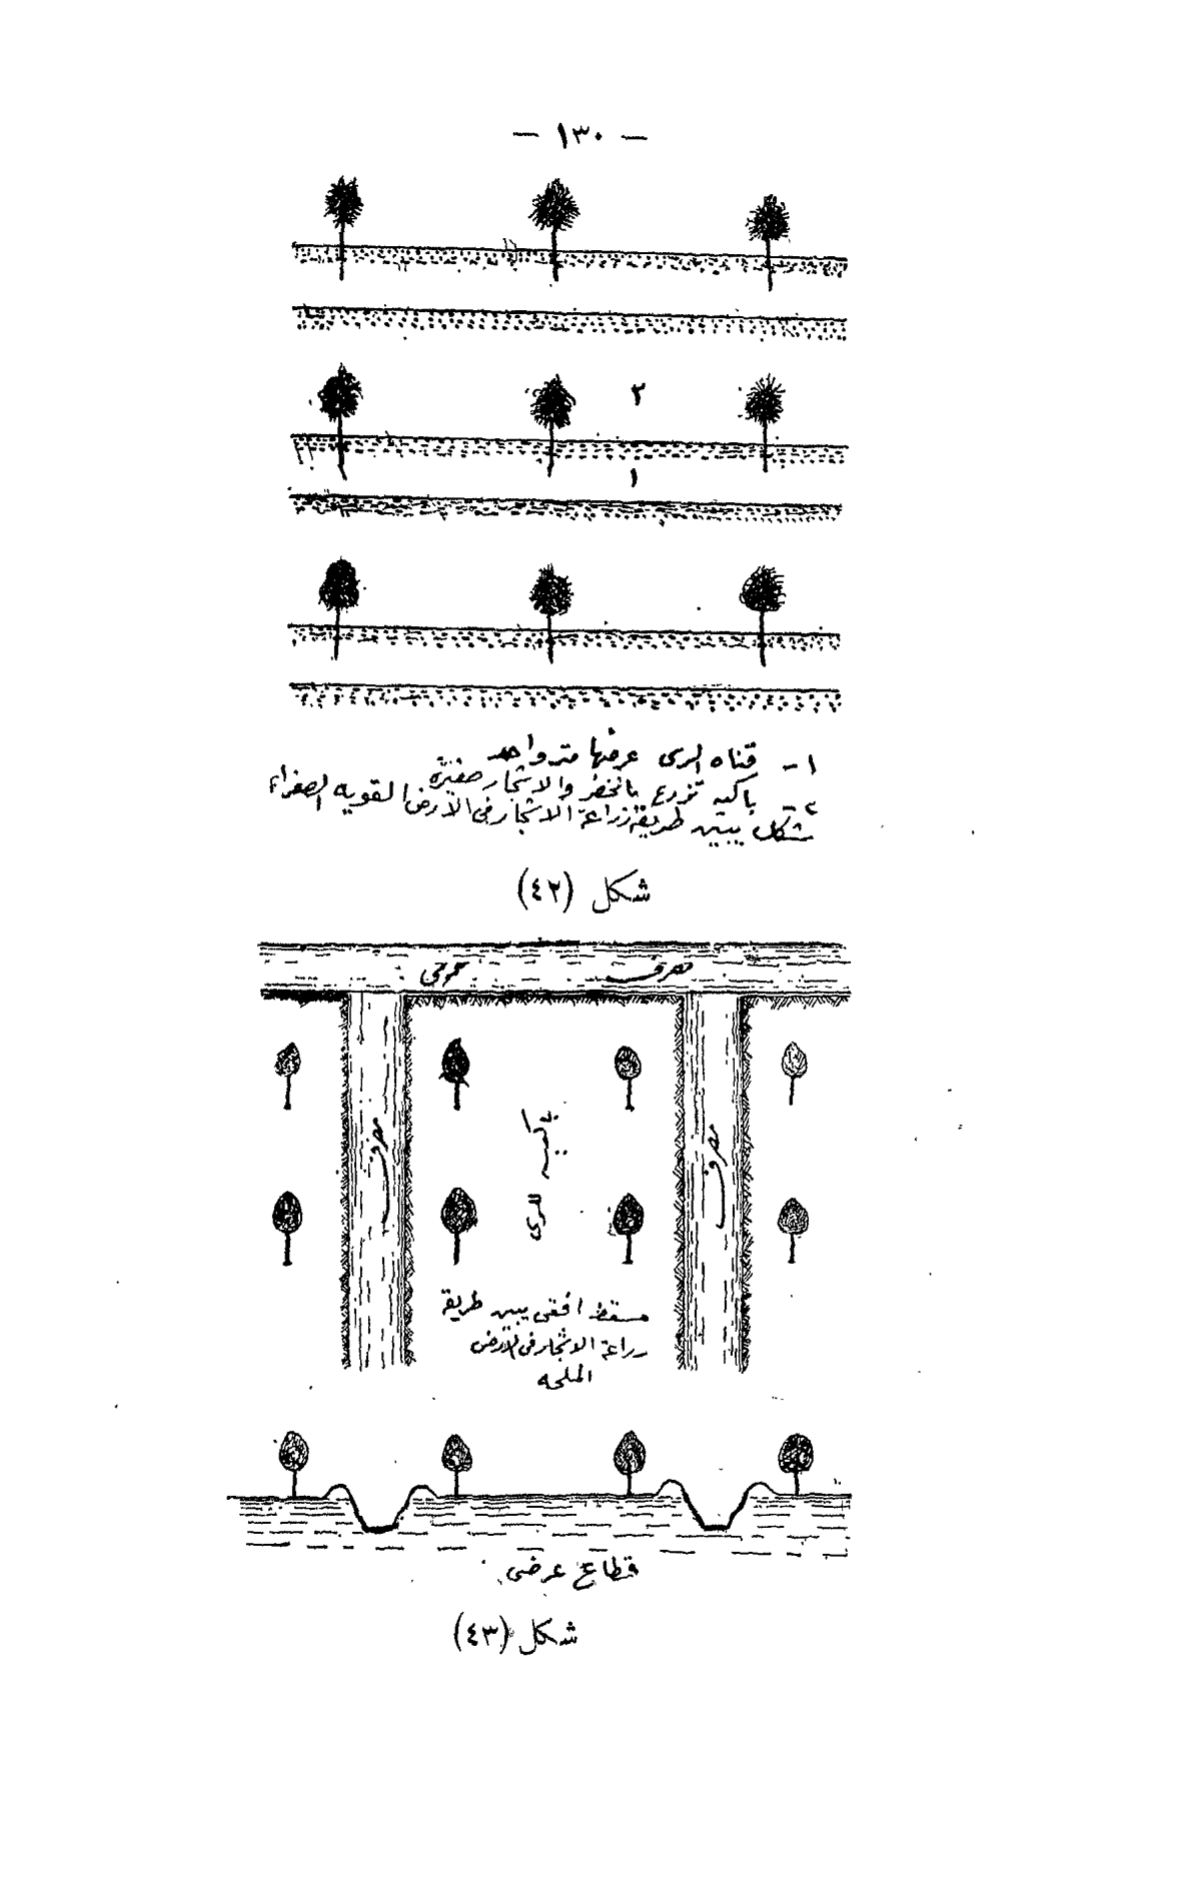 — ١٣٠ —
٢
١
١- قناه الرى عرضها متر واحد
٢- باكيه تزرع بالخضر والاشجار صغيرة
شكل يبين طريقة زراعة الاشجار فى الارض القويه الصفراء
شكل (٤٢)
مصرف عمومى
مصرف
باكيه للرى
مصرف
مسقط افقى يبين طريقة
زراعة الاشجار فى الارض
الملحه
قطاع عرضى
شكل (٤٣)